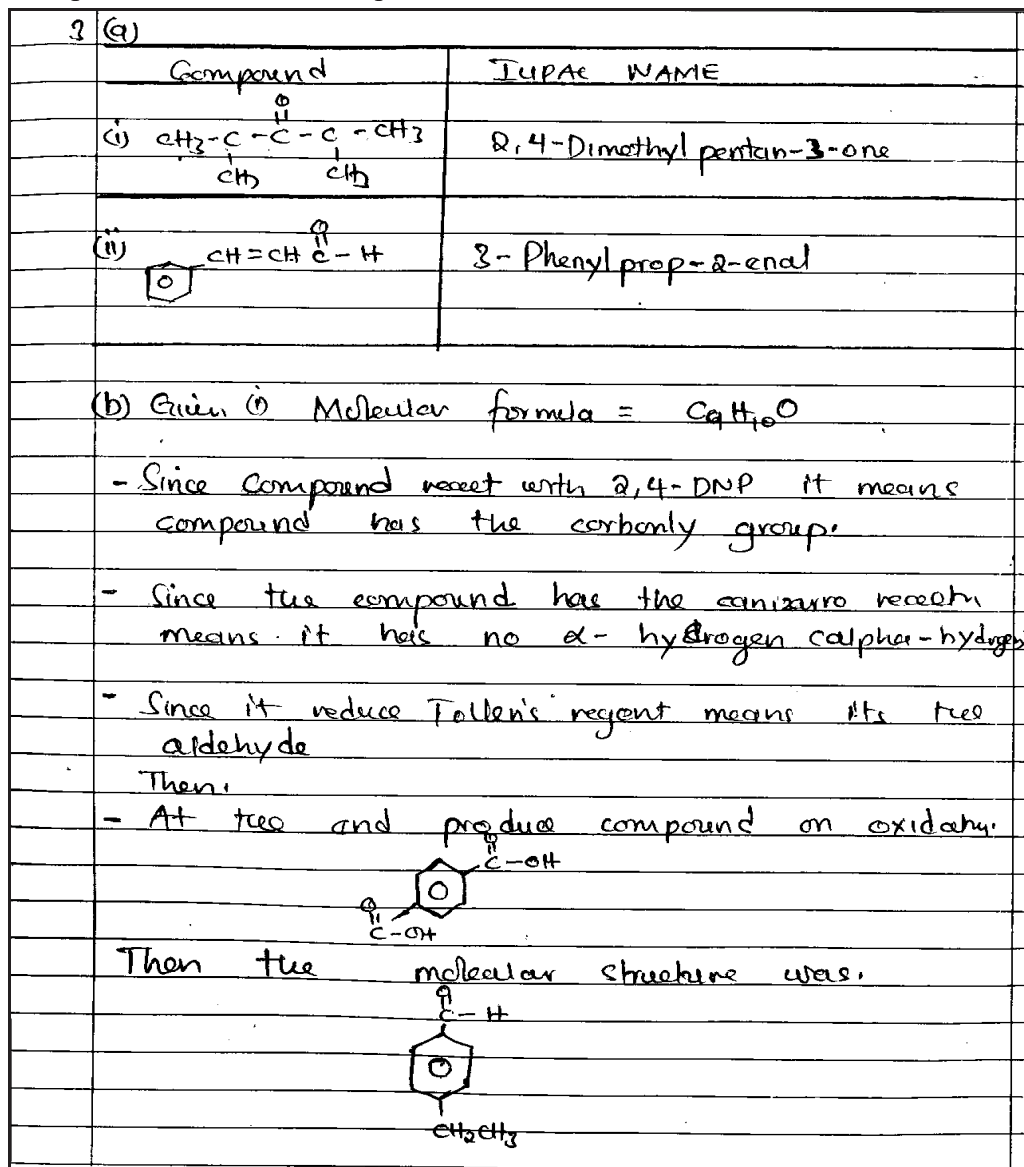 3 (a)
Compound IUPAC NAME
O
(i) CH3-C-C-C-CH3 2,4-Dimethyl pentan-3-one
CH3 CH3
O
(ii) CH=CH C-H 3-Phenyl prop-2-enal
(b) Given (i) Molecular formula = C9H10O
- Since compound react with 2,4-DNP it means
compound has the carbonly group.
- Since the compound has the canizarro
means it has no α- hydrogen (alpha-hydrogen
- Since it reduce Tollen's regent means its the
aldehyde
Then.
- At the and produce compound on
O
C-OH
O
C-OH
Then the molecular structure was.
O
C-H
CH2CH3